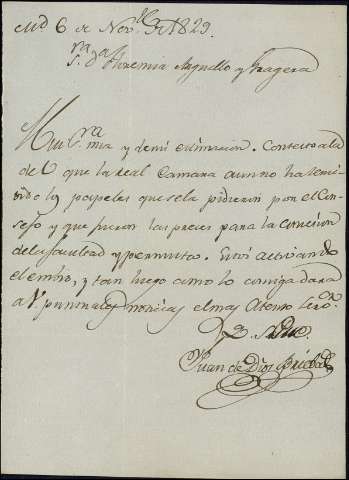 Md 6 de Nov.e de 1829.
S.ra D.a Arguello y Fragera
Mui S.ra mia y de mi estimacion. Contexto a la
de V que la real Camara aun no ha remi-
tido los papeles que se la pidieron por el Con-
sejo y que fueron las preces para la concesion
de la facultad y permuta. Estoi activando
el embio, y tan luego como lo consiga dara
a V puntuales noticias el mas Atento Ser.or
Juan de Dios